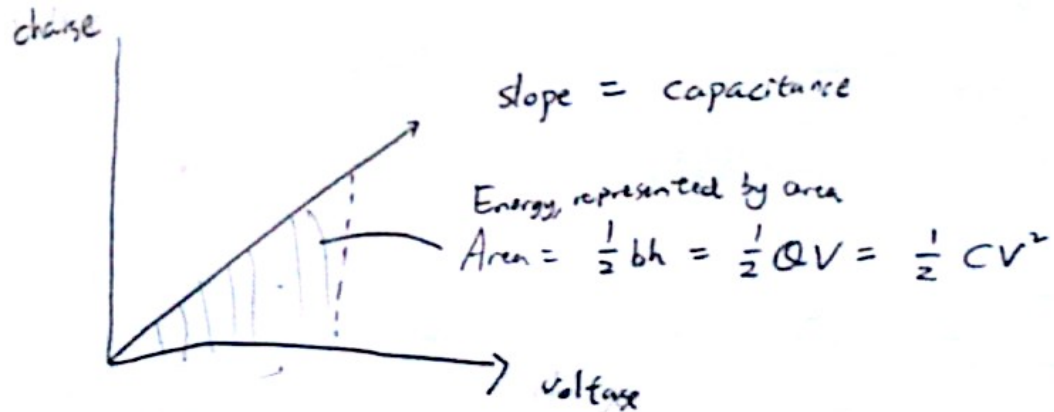 charge
slope = capacitance
Energy, represented by area
Area = ½ bh = ½ QV = ½ CV²
voltage